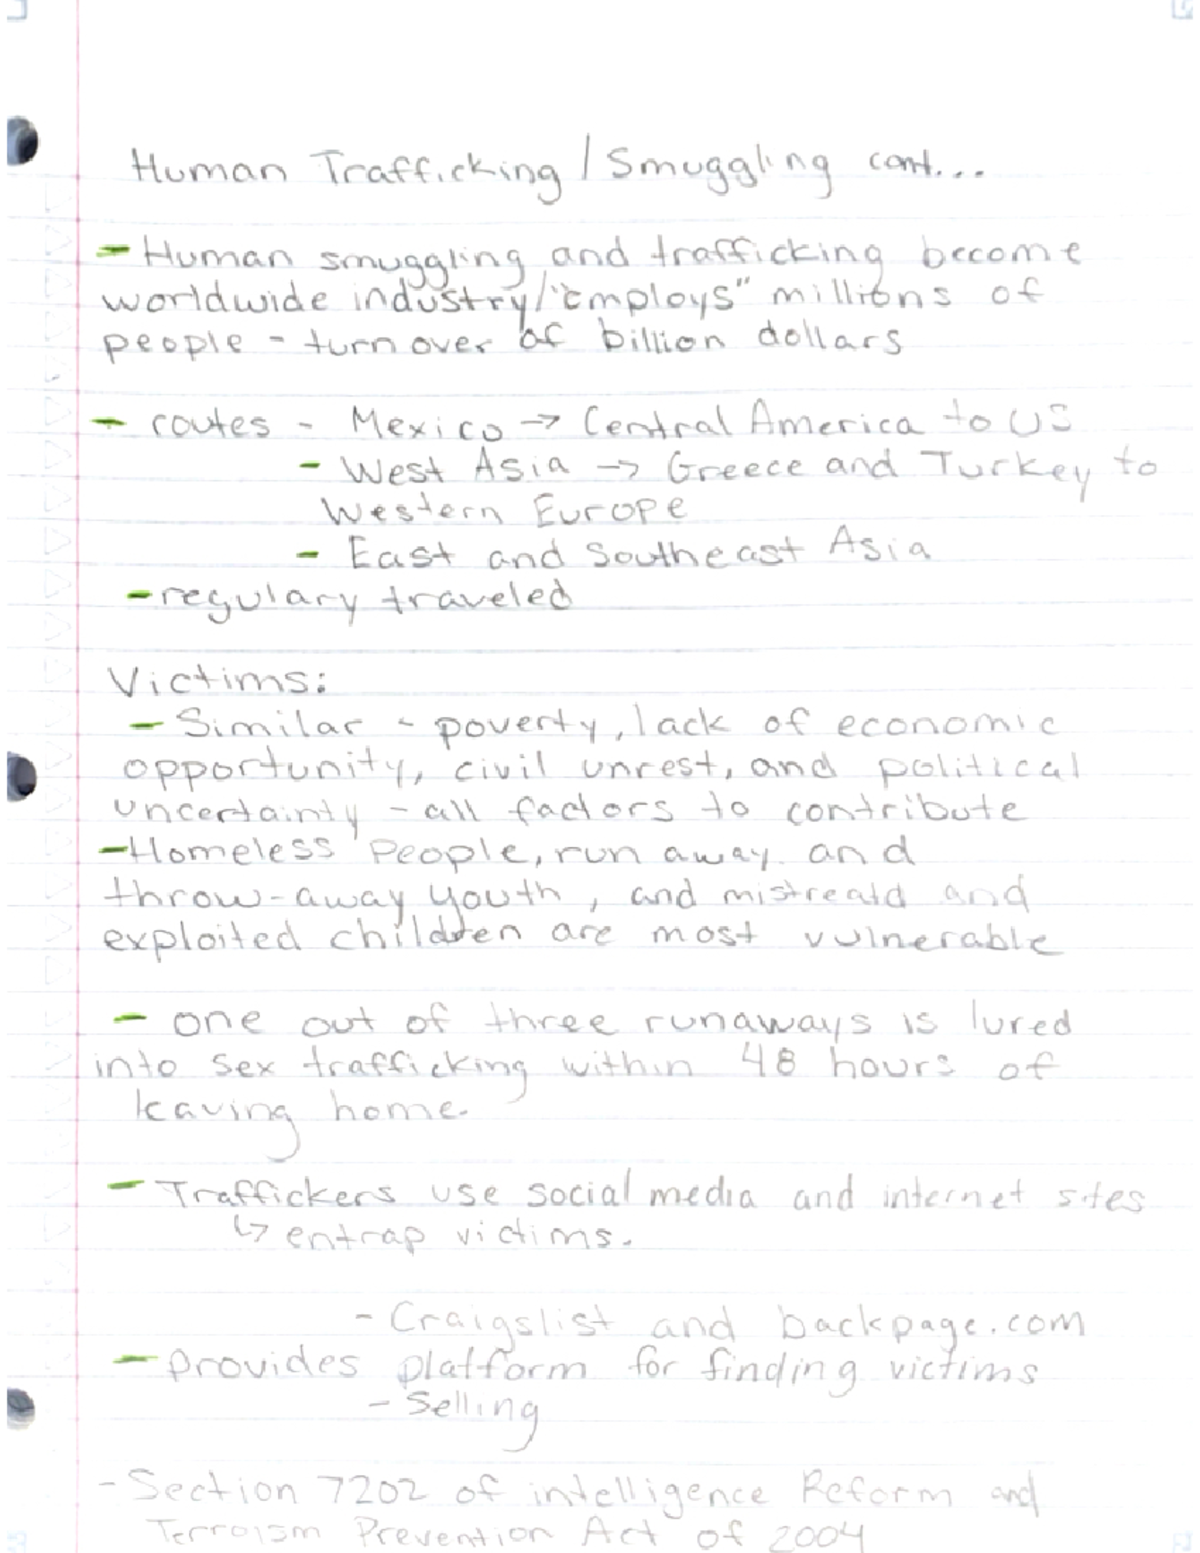 Human Trafficking / Smuggling cont...
- Human smuggling and trafficking become
worldwide industry/"Employs" millions of
people - turn over of billion dollars
- routes - Mexico → Central America to US
- West Asia → Greece and Turkey to
Western Europe
- East and Southeast Asia
- regulary traveled
Victims:
- Similar - poverty, lack of economic
opportunity, civil unrest, and political
uncertainty - all factors to contribute
- Homeless People, run away and
throw-away youth, and mistreatd and
exploited children are most vulnerable
- one out of three runaways is lured
into sex trafficking within 48 hours of
leaving home.
- Traffickers use social media and internet sites
↳ entrap victims.
- Craigslist and backpage.com
- provides platform for finding victims
- Selling
- Section 7202 of intelligence Reform and
Terroism Prevention Act of 2004